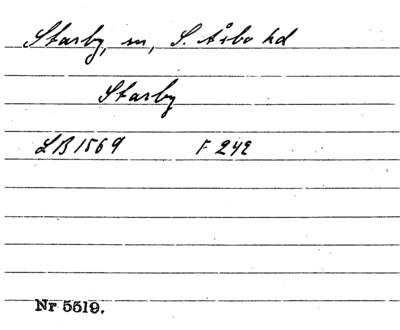 Starby, sn, S. Åsbo hd
Starby
LB 1569 F 242
Nr 5519.